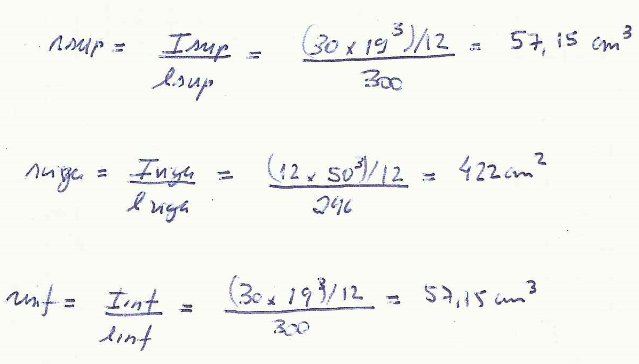 rsup = Isup/lsup = (30 x 19³)/12 / 300 = 57,15 cm³
rviga = Iviga/lviga = (12 x 50³)/12 / 296 = 422 cm²
rinf = Iinf/linf = (30 x 19³)/12 / 300 = 57,15 cm³